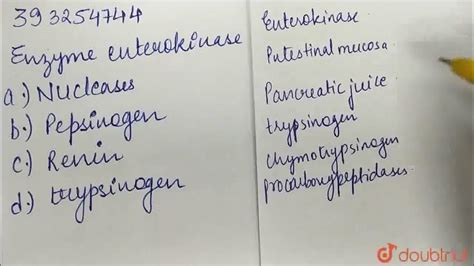 393254744
Enzyme enterokinase
a.) Nucleases
b.) Pepsinogen
c.) Renin
d.) trypsinogen
Enterokinase
Intestinal mucosa.
Pancreatic juice.
trypsinogen
chymotrypsinogen
procarboxypeptidases.
doubtnut